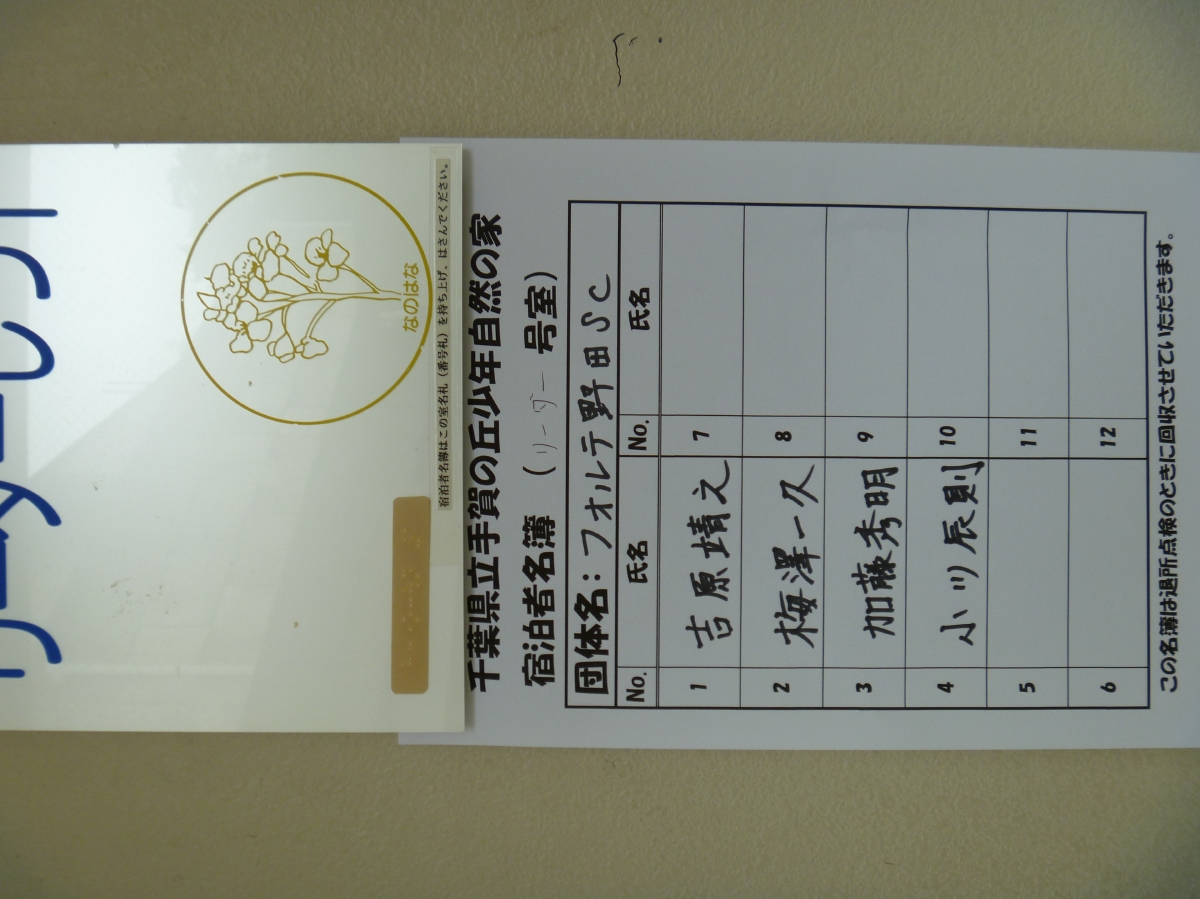 なのはな
宿泊者名簿はこの室名札（番号札）を持ち上げ、はさんでください。
千葉県立手賀の丘少年自然の家
宿泊者名簿（リーダー 号室）
団体名：フォルテ野田SC
No. 氏名 No. 氏名
1 吉原靖之 7
2 梅澤一久 8
3 加藤秀明 9
4 小川辰則 10
5 11
6 12
この名簿は退所点検のときに回収させていただきます。